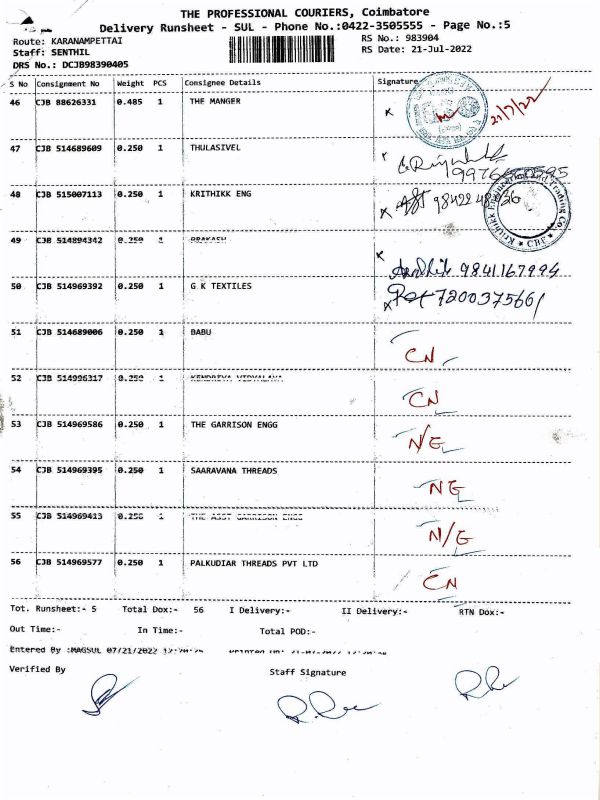 THE PROFESSIONAL COURIERS, Coimbatore
Delivery Runsheet - SUL - Phone No.:0422-3505555 - Page No.:5
Route: KARANAMPETTAI RS No.: 983904
Staff: SENTHIL RS Date: 21-Jul-2022
DRS No.: DCJB98390405
S No Consignment No Weight PCS Consignee Details Signature
46 CJB 88626331 0.485 1 THE MANGER 21/7/22
47 CJB 514689609 0.250 1 THULASIVEL
48 CJB 515007113 0.250 1 KRITHIKK ENG
Krithikk Engineering and Trading Co. CBE
49 CJB 514894342 0.250 1 PRAKASH
9841167994
50 CJB 514969392 0.250 1 G K TEXTILES 7200375661
51 CJB 514689006 0.250 1 BABU CN
52 CJB 514996317 0.250 1 KENDRIYA VIDYALAYA CN
53 CJB 514969586 0.250 1 THE GARRISON ENGG N/E
54 CJB 514969395 0.250 1 SAARAVANA THREADS NE
55 CJB 514969413 0.250 1 THE ASST GARRISON ENGG N/E
56 CJB 514969577 0.250 1 PALKUDIAR THREADS PVT LTD CN
Tot. Runsheet:- 5 Total Dox:- 56 I Delivery:- II Delivery:- RTN Dox:-
Out Time:- In Time:- Total POD:-
Entered By :MAGSUL 07/21/2022 Printed On:
Verified By Staff Signature